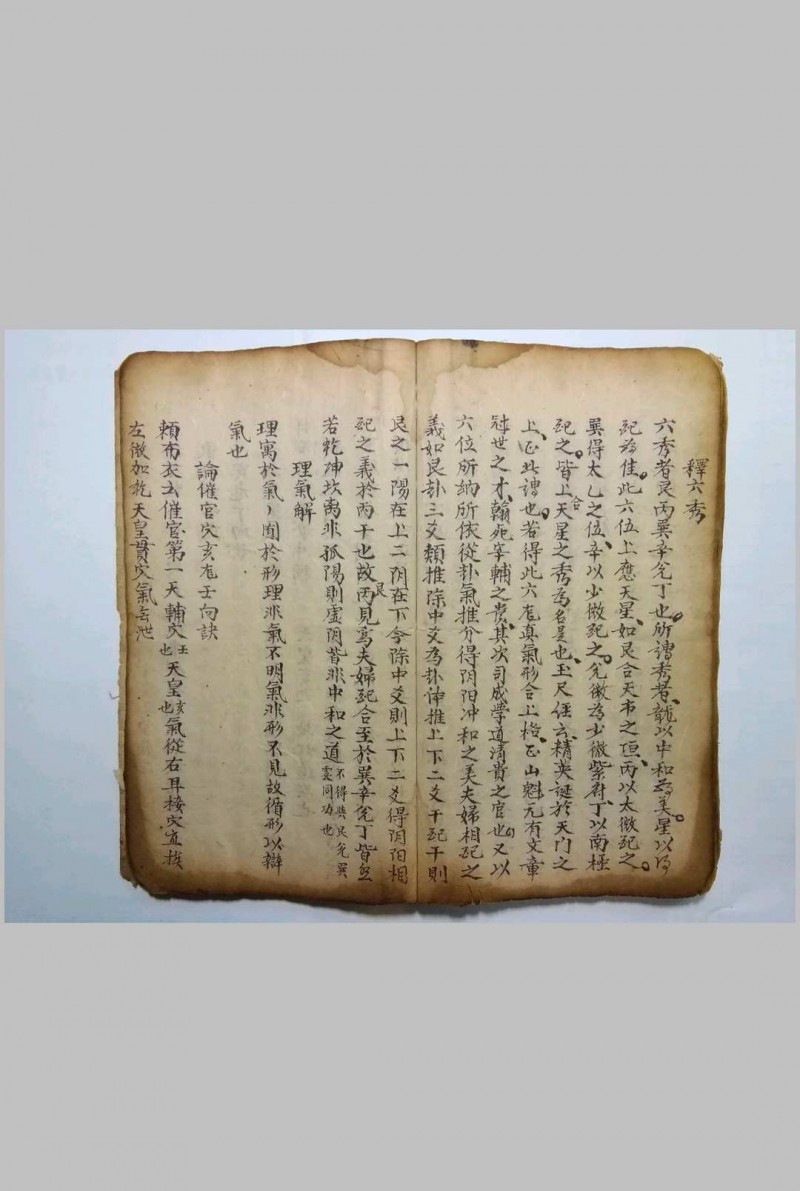 釋六秀
六秀者艮丙巽辛兊丁也所謂秀者龍以中和為美星以得
配為佳此六位上應天星如艮合天市之垣丙以太微配之
巽得太乚之位辛以少微配之兊微為少微紫府丁以南極
配之皆上合天星之秀為名是也玉尺任云精英誕於天門之
上正此謂也若得此六龙真氣形合上格正山魁元有文章
冠世之才翰苑宰輔之贵其次司成学道清貴之官也又以
六位所納所依從卦氣推分得阴阳冲和之美夫婦相配之
義如艮卦三爻類推除中爻為卦体推上下二爻干配干則
艮之一陽在上二阴在下今除中爻則上下二爻得阴阳相
配之義於丙干也故丙見艮為夫婦配合至於巽辛兊丁皆然
若乾坤坎离非孤陽則虚阴皆非中和之道不得與艮兊巽震同功也
理氣解
理寓於氣〻囿於形理非氣不明氣非形不見故循形以辯
氣也
論催官穴亥龙壬向訣
頼布衣云催官第一天輔穴壬也天皇亥也氣從右耳接穴宜挨
左微加乾天皇貫穴氣去泄